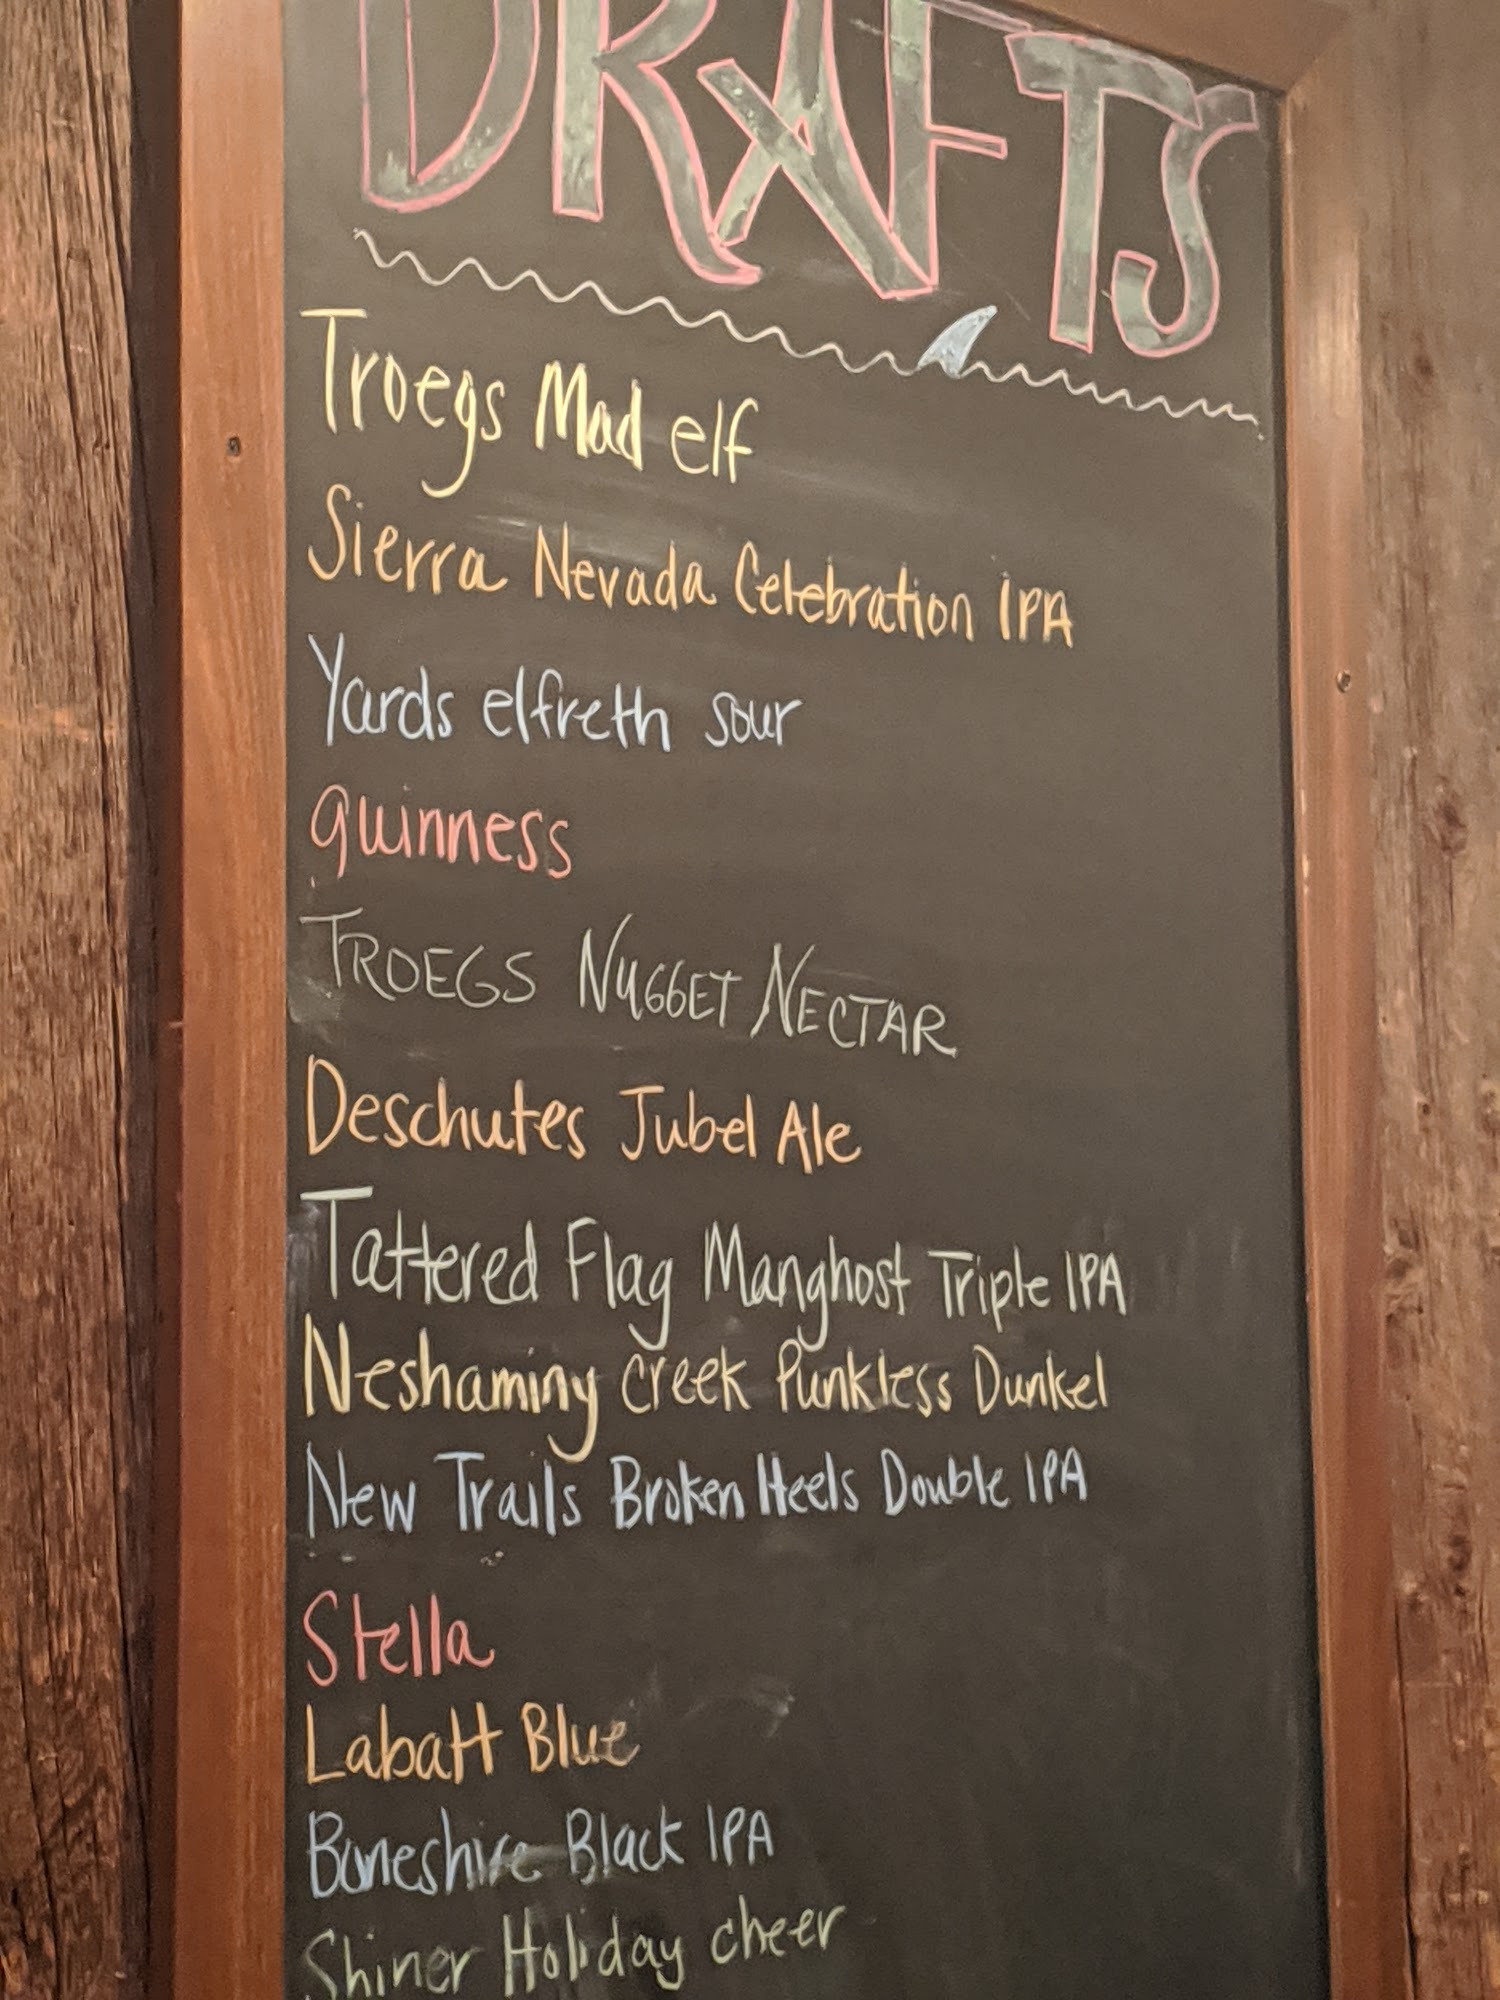 DRAFTS
Troegs Mad elf
Sierra Nevada Celebration IPA
Yards elfreth sour
guinness
TROEGS NUGGET NECTAR
Deschutes Jubel Ale
Tattered Flag Manghost Triple IPA
Neshaminy Creek Punkless Dunkel
New Trails Broken Heels Double IPA
Stella
Labatt Blue
Boneshire Black IPA
Shiner Holiday cheer